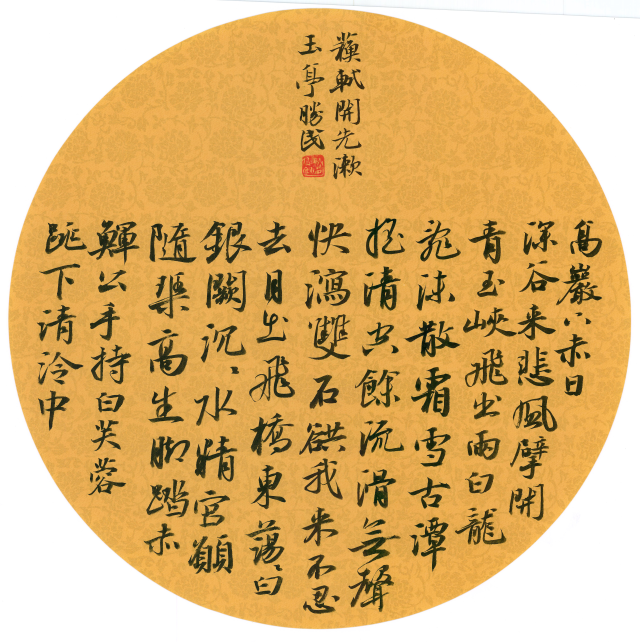 蘇軾開先漱
玉亭勝民
高巖下赤日
深谷來悲風擘開
青玉峽飛出兩白龍
亂沫散霜雪古潭
搖清空餘流滑無聲
快瀉雙石谼我來不忍
去月出飛橋東蕩、白
銀闕沉、水精宮願
隨琹高生脚踏赤
鯶公手持白芙蓉
跳下清泠中